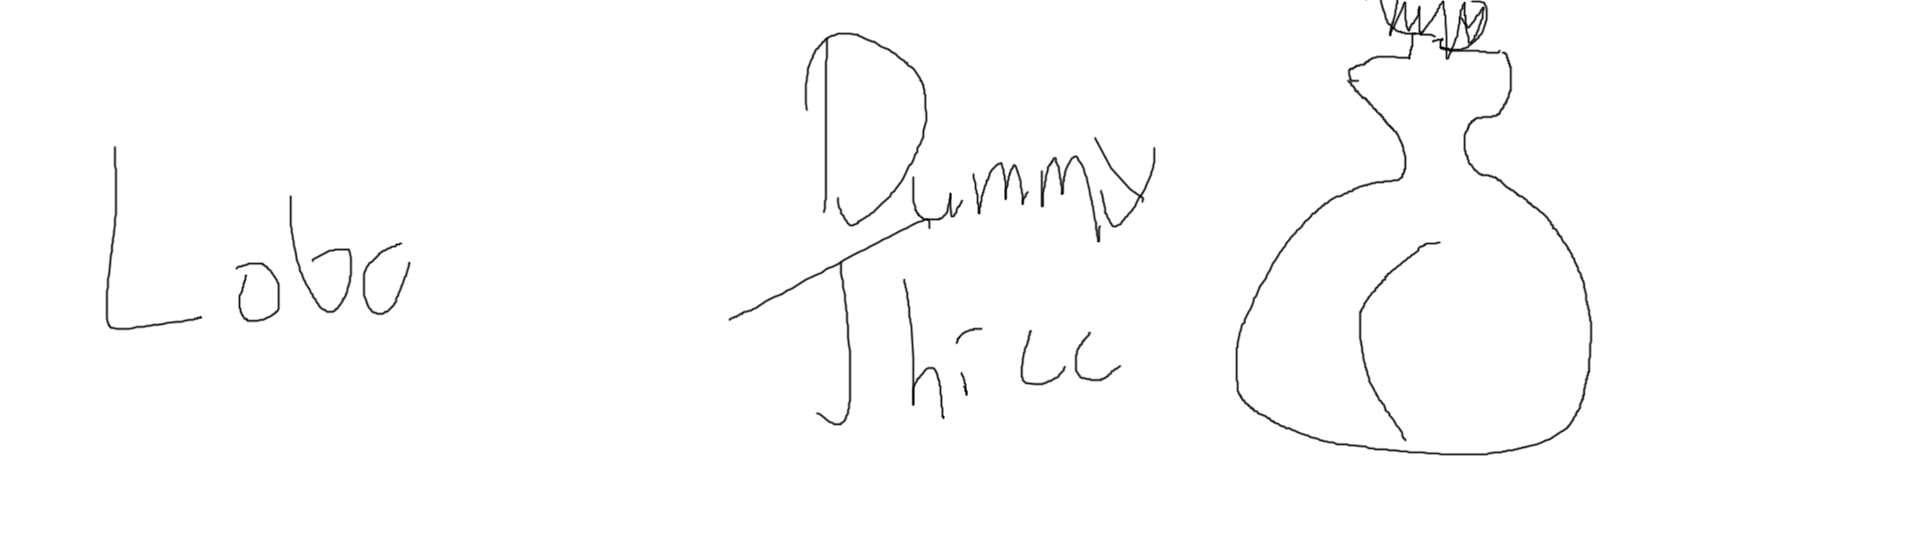 Lobo
Dummy
Thicc